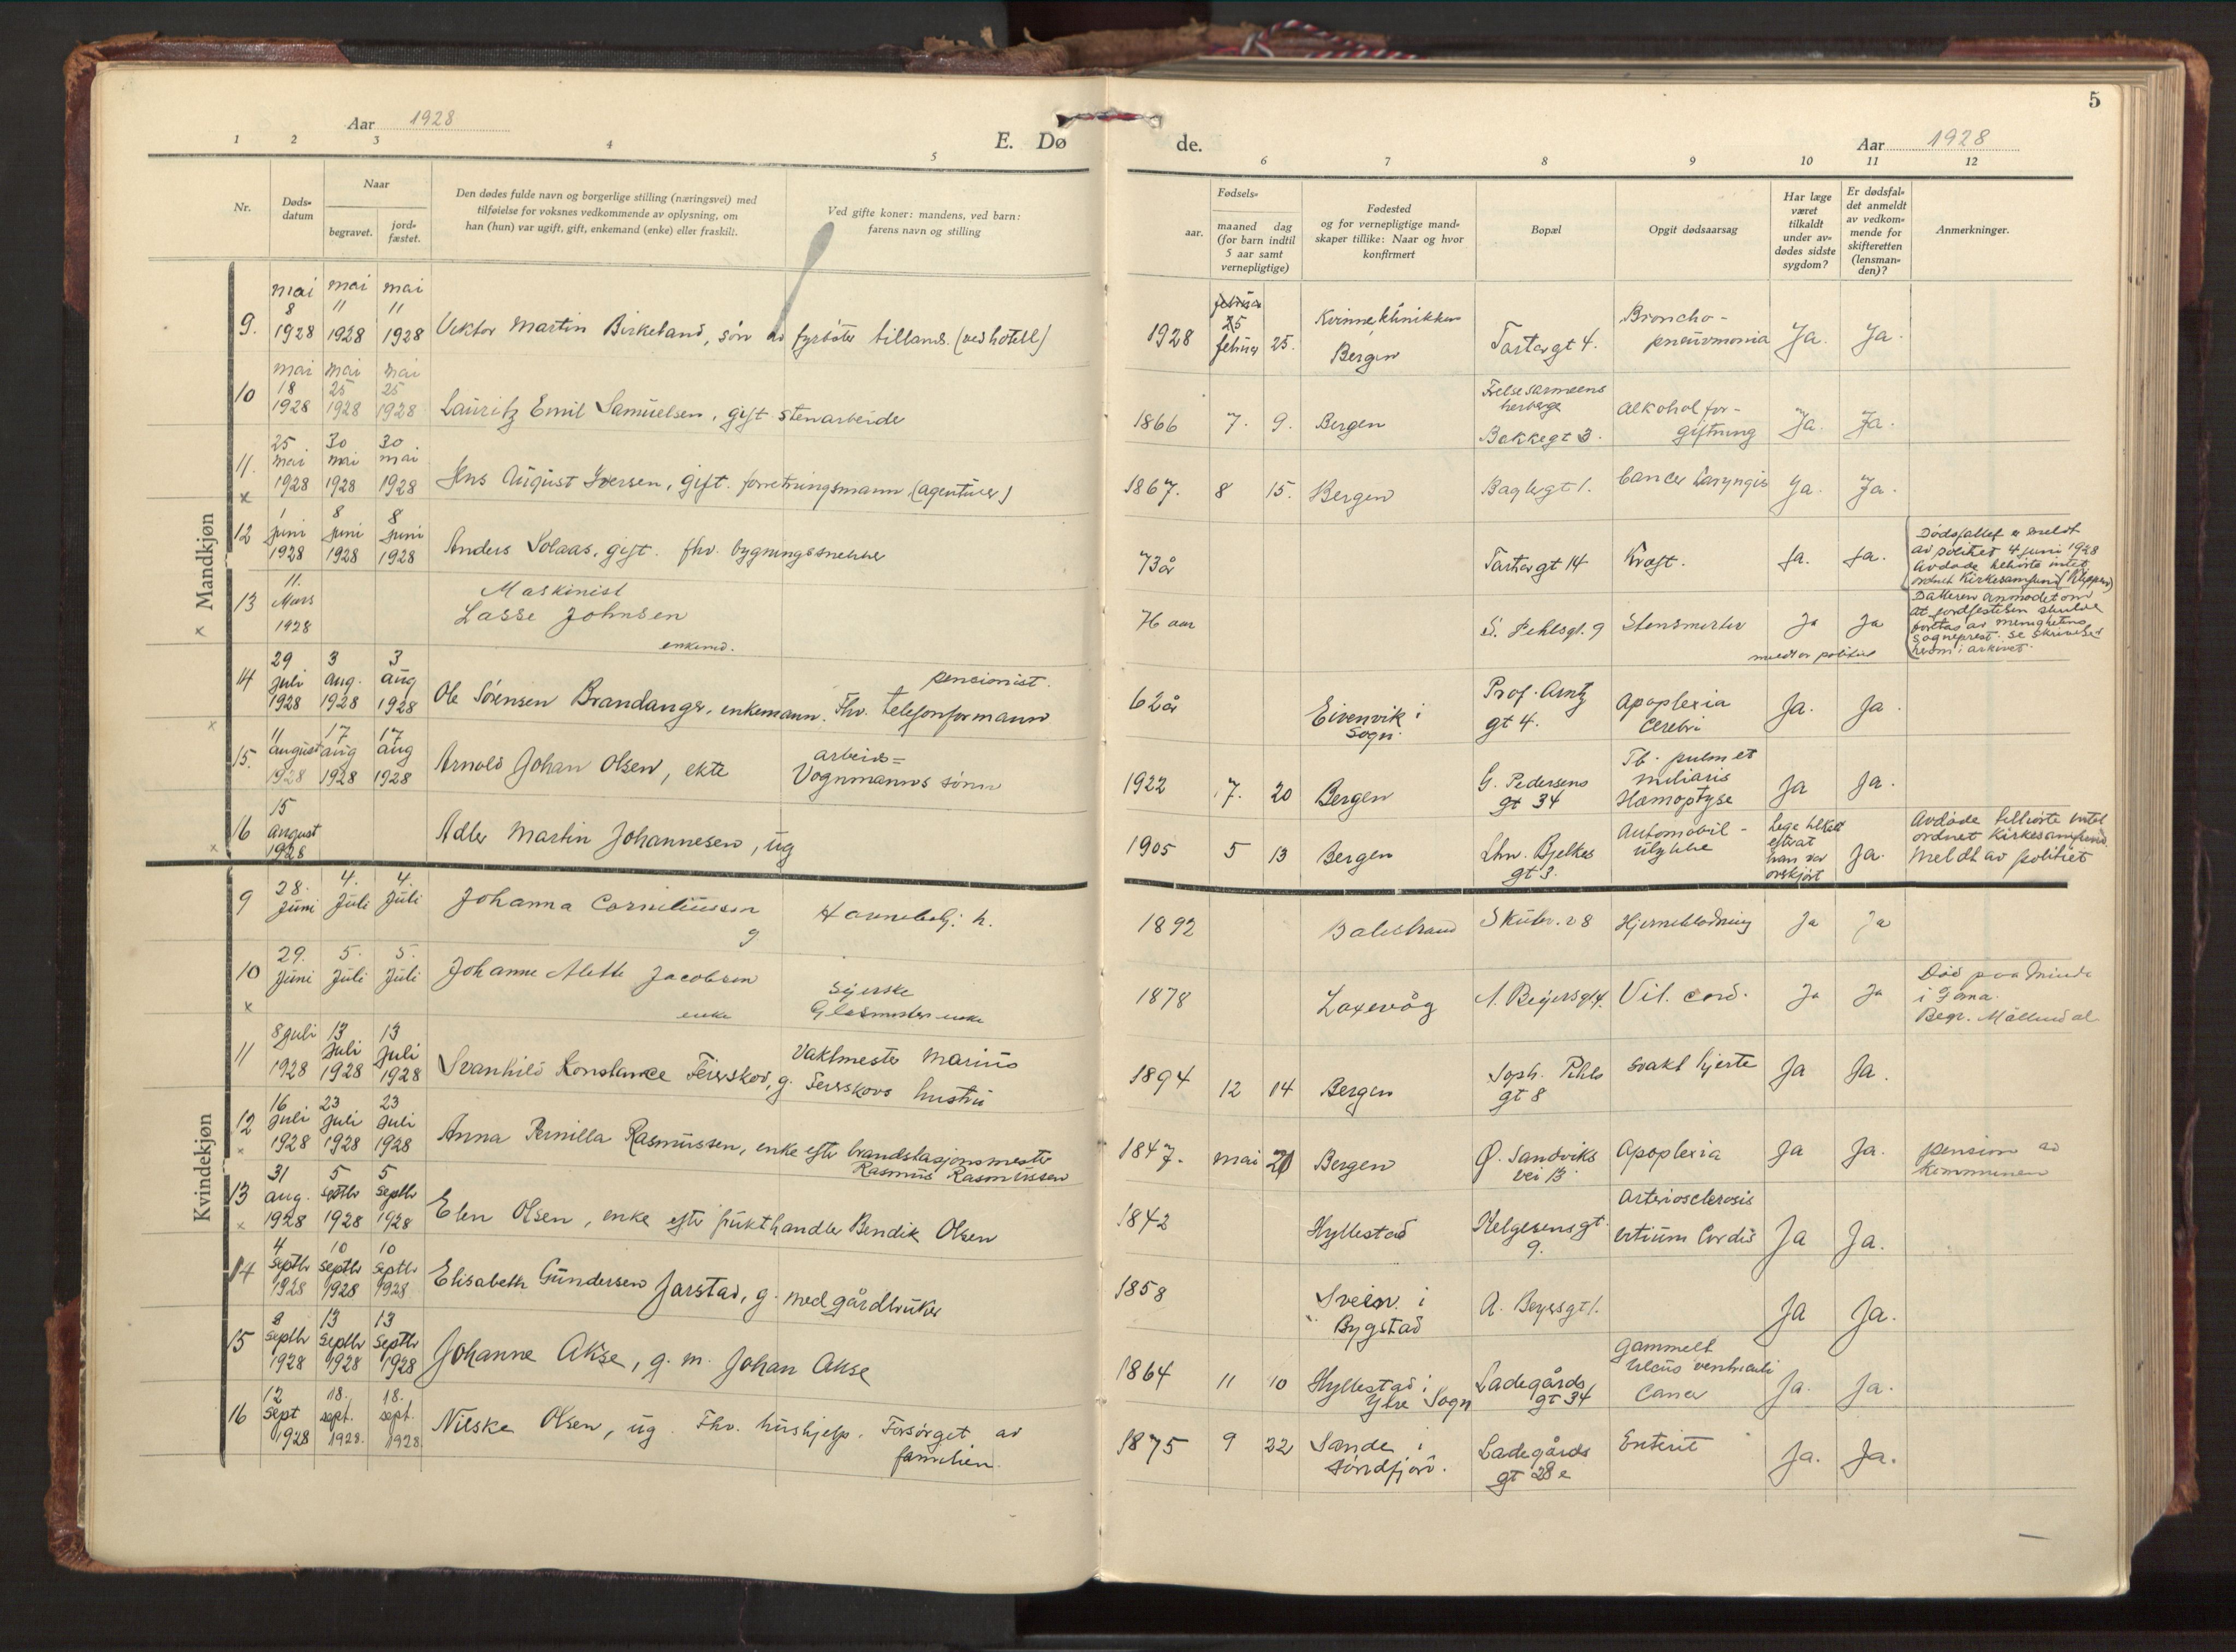 5
Aar 1928
E. Dø
de.
Aar 1928
1 2 3 4 5 6 7 8 9 10 11 12
Nr.
Døds-
datum
Naar
begravet.
jord-
fæstet.
Den dødes fulde navn og borgerlige stilling (næringsvei) med
tilføielse for voksnes vedkommende av oplysning, om
han (hun) var ugift, gift, enkemand (enke) eller fraskilt.
Ved gifte koner: mandens, ved barn:
farens navn og stilling
Fødsels-
aar.
maaned dag
(for barn indtil
5 aar samt
vernepligtige)
Fødested
og for vernepligtige mand-
skaper tillike: Naar og hvor
konfirmert
Bopæl
Opgit dødsaarsag
Har læge
været
tilkaldt
under av-
dødes sidste
sygdom?
Er dødsfal-
det anmeldt
av vedkom-
mende for
skifteretten
(lensman-
den)?
Anmerkninger.
Mandkjøn
9.
mai 8 1928
mai 11 1928
mai 11 1928
Viktor Martin Birkeland, søn av fyrbøter tillands. (ved hotell)
1928
25
februar 25.
Kvinneklinikken
Bergen
Tartargt 4.
Broncho-
pneumonia
Ja.
Ja.
10
mai 18 1928
mai 25 1928
mai 25 1928
Lauritz Emil Samuelsen, gift stenarbeide
1866 7. 9. Bergen
Frelsesarmeens
herberge
Bakkegt 3.
Alkohol for-
giftning
Ja.
Ja.
11.
x
25 mai 1928
30 mai 1928
30 mai 1928
Jens August Iversen, gift. forretningsmann (agenturer)
1867. 8 15. Bergen
Baglergt 1.
Cancer Laryngis
Ja.
Ja.
12
1 juni 1928
8 juni 1928
8 juni 1928
Anders Solaas, gift. fhv. bygningssnekker
73 år
Tartargt 14
Kræft.
Ja.
Ja.
Dødsfallet er meldt
av politiet 4 juni 1928
Avdøde tilhørte intet
ordnet Kirkesamfund
13
x
11. Mars 1928
Maskinist
Lasse Johnsen
enkemd.
76 aar
S. Pehlsgt. 9
Stensmerter
Ja
Ja
meldt av politiet
Datteren anmodet om
at jordfestelsen skulde
foretas av menighetens
sogneprest. se skrivelse
herom i arkivet.
14
x
29 juli 1928
3 aug. 1928
3 aug 1928
Ole Sørensen Brandanger, enkemann. Fhv. telefonformann
pensionist.
62 år
Eivenvik i
Sogn.
Prof. Arntz
gt 4.
Apoplexia
Cerebri
Ja.
Ja.
15.
11 august 1928
17 aug 1928
17 aug 1928
Arnold Johan Olsen, ekte
arbeids-
Vognmanns sønn
1922 7. 20 Bergen
G. Pedersens
gt 34
Tb. pulm et
miliaris
Hæmoptyse
Ja
Ja.
16
x
15 august 1928
Adler Martin Johannesen, ug
1905 5 13 Bergen
Chr. Bjelkes
gt 3.
Automobil-
ulykke
Lege tilkalt
efterat
han var
overkjørt
Ja.
Avdøde tilhørte intet
ordnet Kirkesamfund.
Meldt av politiet
Kvindekjøn
9
28. Juni
4. Juli
4. Juli
Johanna Corneliussen
g
1892
Balestrand
Skutev. 28
Hjerneblødning
Ja
Ja
10
x
29. Juni
5. Juli
5. Juli
Johanne Alette Jacobsen
enke
Syerske
Glasmester enke
1878
Laxevåg
A. Beyersgt 4.
Vit. cord.
Ja
Ja
Død paa Minde
i Fana.
Begr. Møllendal
11
8 juli 1928
13 Juli 1928
13 Juli 1928
Svanhild Konstance Ferrskov, g.
Vaktmester Marius
Ferrskovs hustru
1894 12 14 Bergen
Soph. Pihls
gt 8
svakt hjerte
Ja
Ja.
12
x
16 Juli 1928
23 Juli 1928
23 Juli 1928
Anna Pernilla Rasmussen, enke efter brandstasjonsmester
Rasmus Rasmussen
1847. mai 20 Bergen
Ø. Sandviks
vei 13.
Apoplexia
Ja
Ja.
pension av
kommunen
13
x
31 aug. 1928
5 septbr 1928
5 septbr 1928
Elen Olsen, enke efter frukthandler Bendik Olsen
1842
Hyllestad
Helgesensgt.
9.
Arteriosclerosis
vitium Cordis
Ja
Ja.
14
4 septbr 1928
10 septbr 1928
10 septbr 1928
Elisabeth Gundersen Jarstad, g. med gårdbruker
1858
i
Bygstad
A. Beyersgt 1.
Ja
Ja.
15
8 septbr 1928
13 septbr 1928
13 septbr 1928
Johanne Akse, g. m. Johan Akse
1864 11 10
Hyllestad i
Ytre Sogn
Ladegårds
gt 34
Gammelt
Ulcus ventriculi
Cancer
Ja.
Ja.
16
12 sept 1928
18. sept. 1928.
18. sept. 1928
Nilske Olsen, ug. Fhv. hushjelp. Forsørget av
familien.
1875 9 22
Sande i
Søndfjord.
Ladegårds
gt 28 e
Enterit
Ja.
Ja.